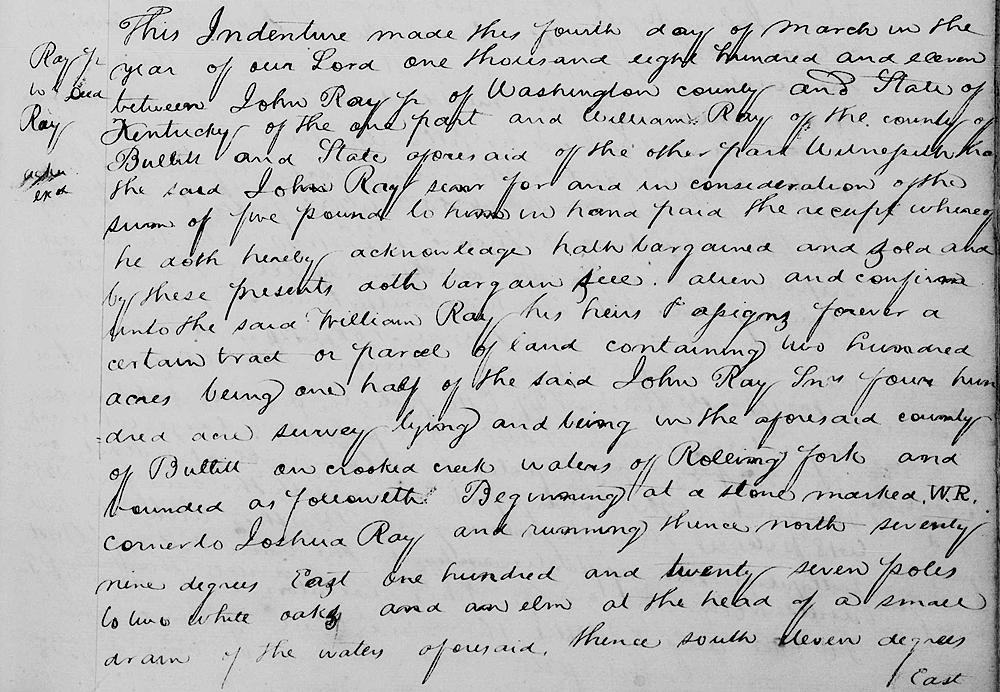 This Indenture made this fourth day of March in the
Ray Jr
year of our Lord one thousand eight hundred and eleven
to Deed
between John Ray Jr of Washington county and State of
Ray
Kentucky of the one part and William Ray of the county of
Bullitt and State aforesaid of the other part Witnesseth tha
exd
the said John Ray senr for and in consideration of the
sum of five pound to him in hand paid the receipt whereof
he doth hereby acknowledge hath bargained and sold and
by these presents doth bargain sell. alien and confirm
unto the said William Ray his heirs & assigns forever a
certain tract or parcel of land containing two hundred
acres being one half of the said John Ray Snrs four hun
dred acre survey lying and being in the aforesaid county
of Bullitt on crooked creek waters of Rolling fork and
bounded as followeth Beginning at a stone marked. W.R.
corner to Joshua Ray and running thence north seventy
nine degrees East one hundred and twenty seven poles
to two white oaks and an elm at the head of a small
drain of the waters aforesaid. thence south eleven degrees
East